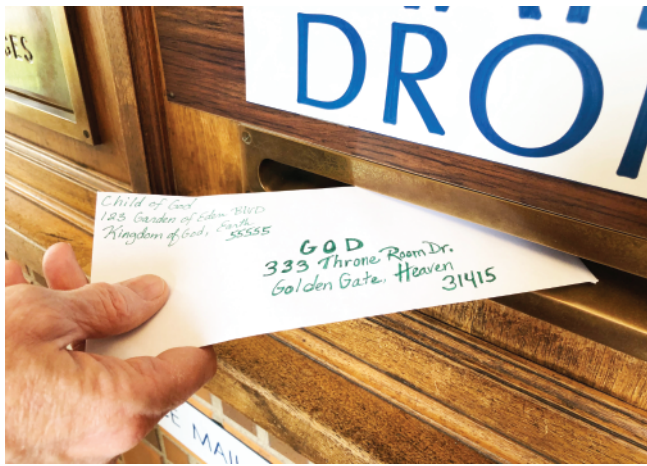 DRO
Child of God
123 Garden of Eden BLVD
Kingdom of God, Earth
55555
GOD
333 Throne Room Dr.
Golden Gate, Heaven
31415
MAIL